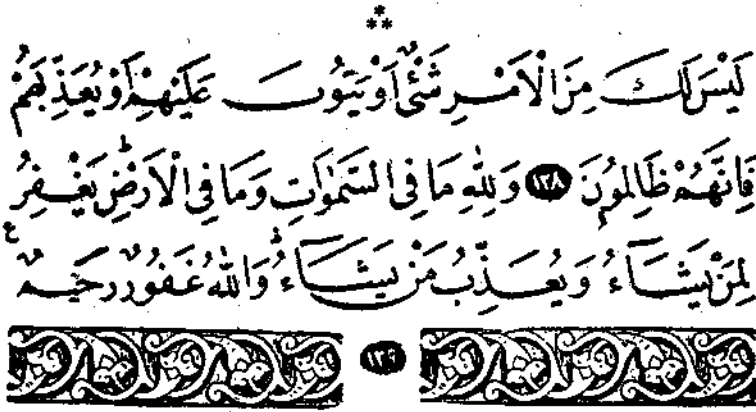 لَيْسَ لَكَ مِنَ الْاَمْرِ شَئٌْ اَوْ يَتُوبَ عَلَيْهِمْ اَوْ يُعَذِّبَهُمْ
فَاِنَّهُمْ ظَالِمُونَ ﴿١٢٨﴾ وَلِلّٰهِ مَا فِى السَّمٰوَاتِ وَمَا فِى الْاَرْضِ يَغْفِرُ
لِمَنْ يَشَٓاءُ وَيُعَذِّبُ مَنْ يَشَٓاءُ وَاللّٰهُ غَفُورٌ رَحِيمٌ
﴿١٢٩﴾